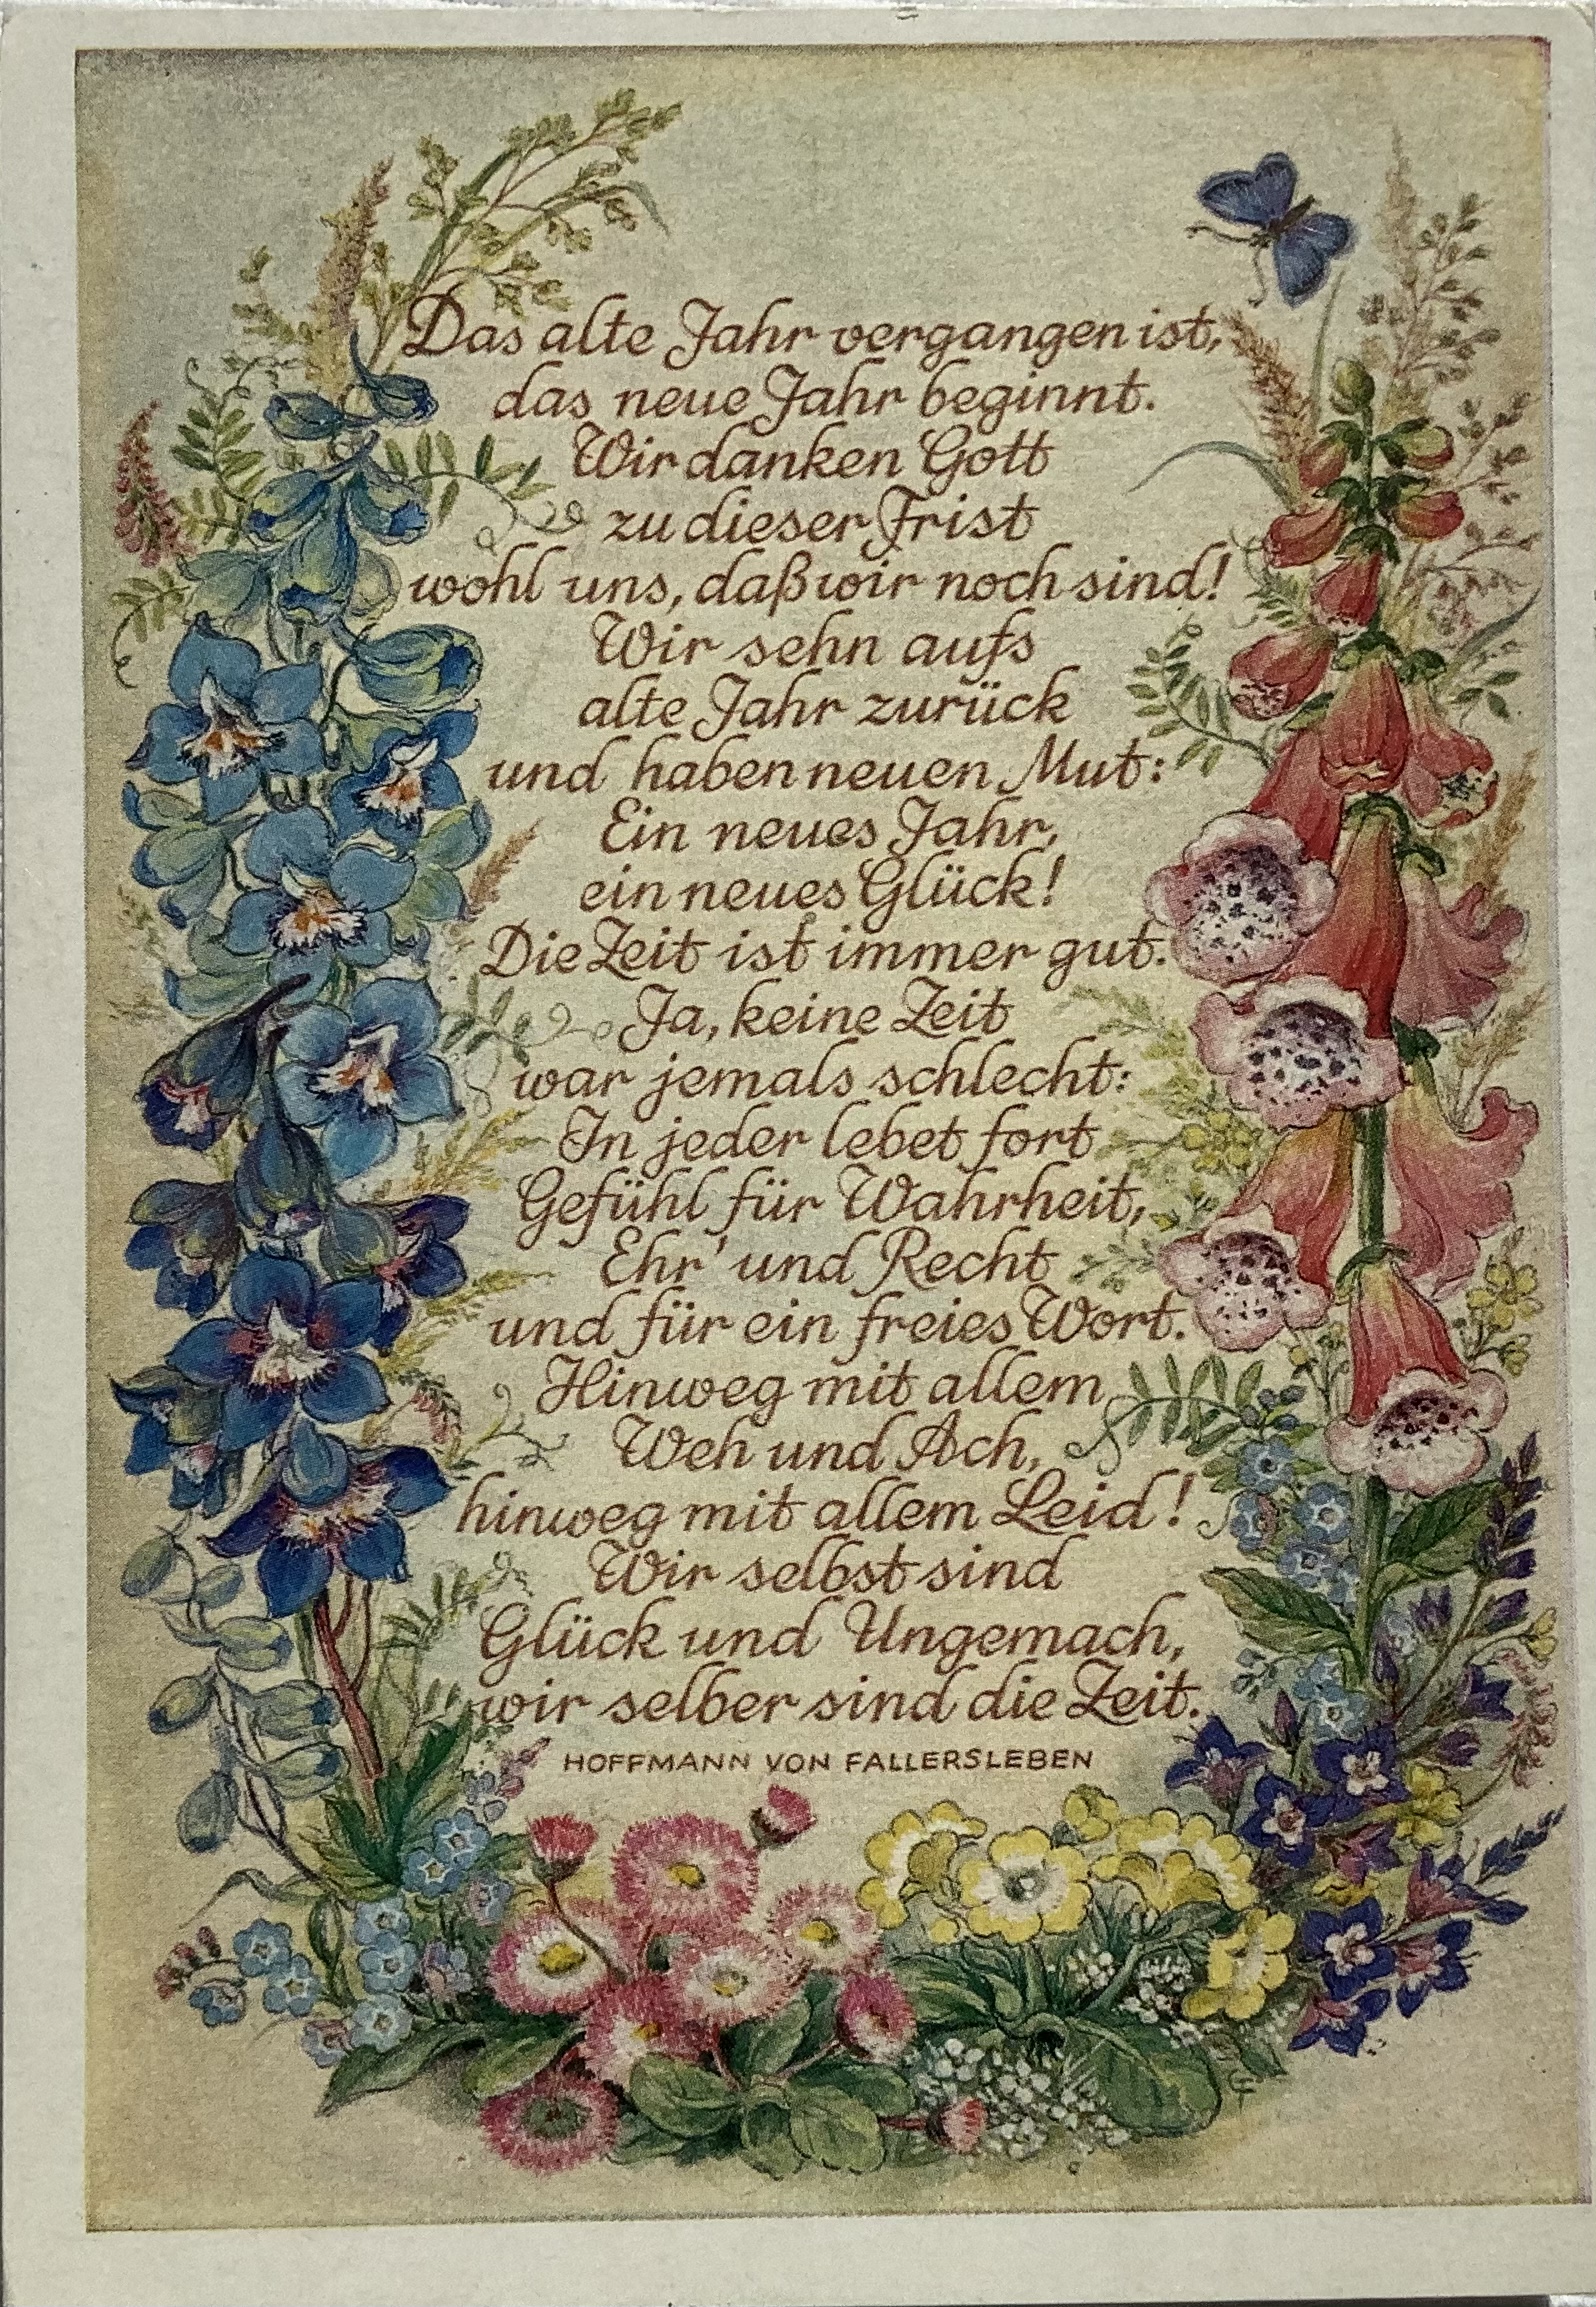 Das alte Jahr vergangen ist,
das neue Jahr beginnt.
Wir danken Gott
zu dieser Frist
wohl uns, daß wir noch sind!
Wir sehn aufs
alte Jahr zurück
und haben neuen Mut:
Ein neues Jahr,
ein neues Glück!
Die Zeit ist immer gut.
Ja, keine Zeit
war jemals schlecht:
In jeder lebet fort
Gefühl für Wahrheit,
Ehr' und Recht
und für ein freies Wort.
Hinweg mit allem
Weh und Ach,
hinweg mit allem Leid!
Wir selbst sind
Glück und Ungemach,
wir selber sind die Zeit.
HOFFMANN VON FALLERSLEBEN